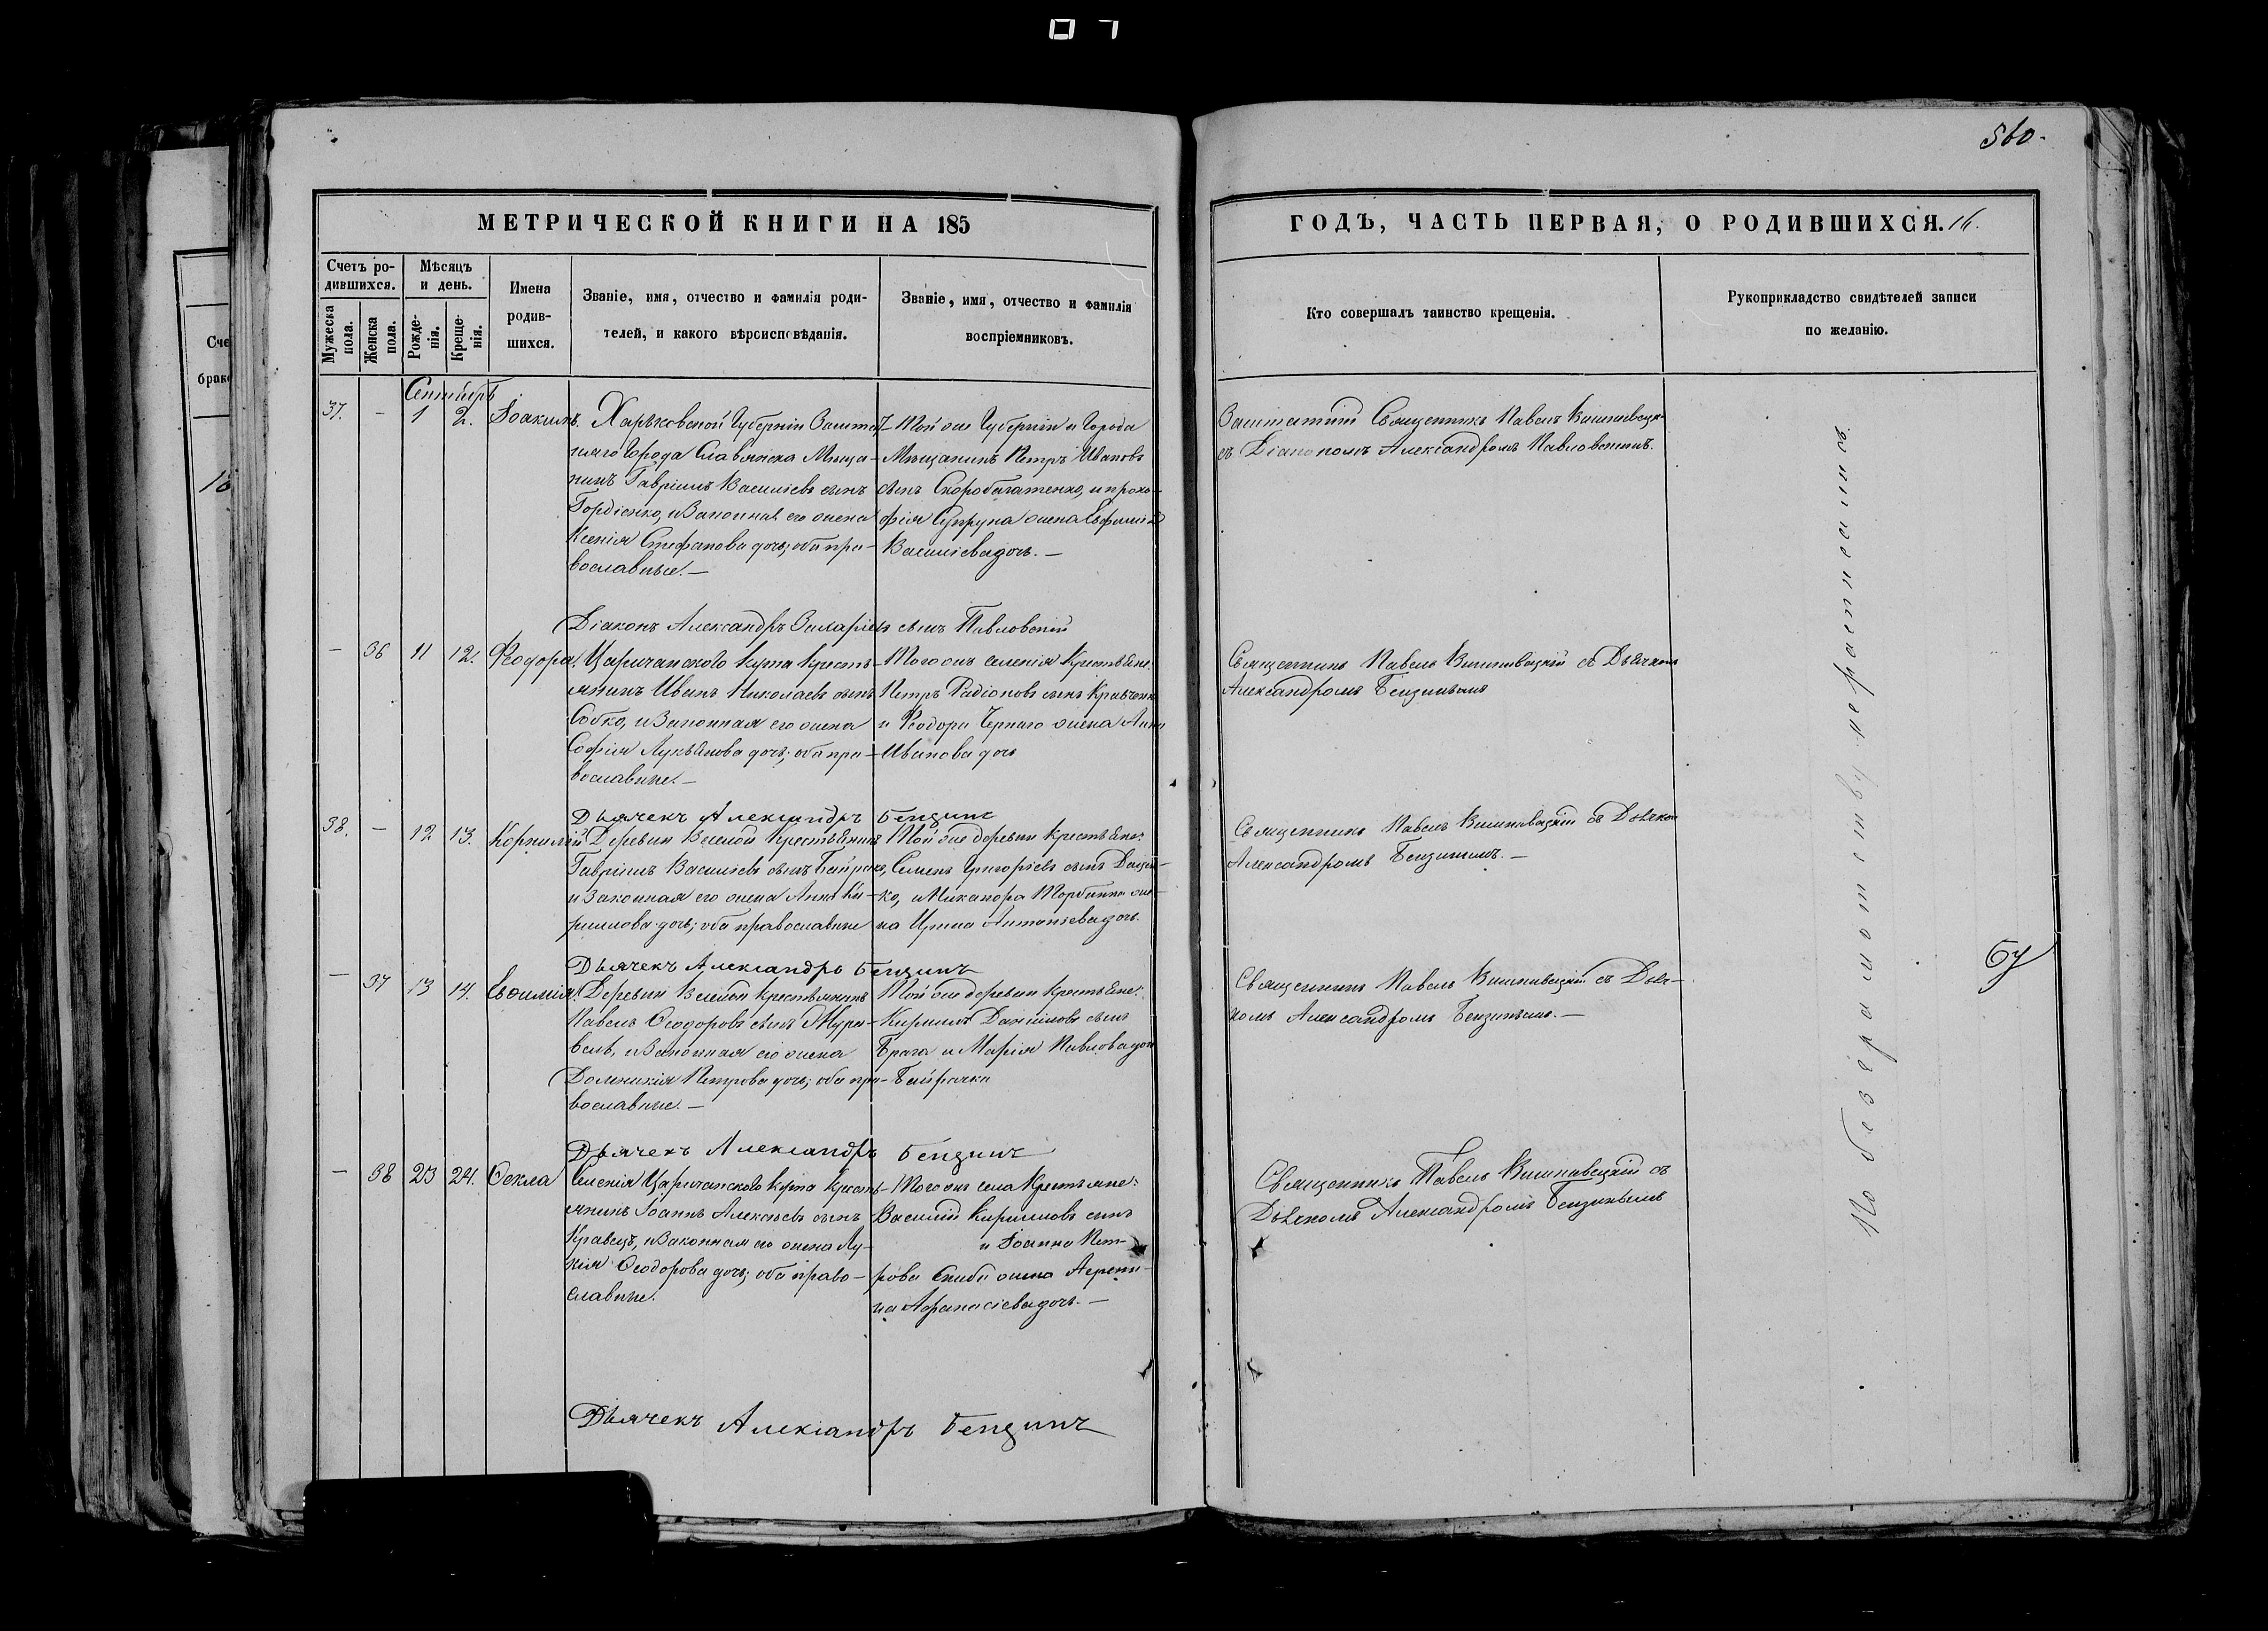 560.
МЕТРИЧЕСКОЙ КНИГИ НА 185
ГОДЪ, ЧАСТЬ ПЕРВАЯ, О РОДИВШИХСЯ. 16.
Счетъ ро-
дившихся.
Мужеска пола.
Женска пола.
Мѣсяцъ
и день.
Рожде-
нія.
Креще-
нія.
Имена
родив-
шихся.
Званіе, имя, отчество и фамилія роди-
телей, и какого вѣроисповѣданія.
Званіе, имя, отчество и фамилія
воспріемниковъ.
Кто совершалъ таинство крещенія.
Рукоприкладство свидѣтелей записи
по желанію.
Сентябрь
37. — 1 2. Іоакимъ.
Харьковской Губерніи Заштат-
наго Города Славянска Мѣща-
нинъ Гавріилъ Василіевъ сынъ
Гордіенко, и Законная его жена
Ксенія Стефанова дочь; оба пра-
вославные. —
Той же Губерніи и Города
Мѣщанинъ Петръ Ивановъ
сынъ Скоробагатенко, и проко-
фія Супруна жена Евфимія
Василіева дочь. —
Заштатный Священникъ Павелъ
съ Діакономъ Александромъ Павловскимъ.
Діаконъ Александръ сынъ Павловскій
— 36 11 12. Ѳеодора.
Царичанского Кута Кресть-
янинъ Иванъ Николаевъ сынъ
Собко, и Законная его жена
Софія Лукьянова дочь; оба пра-
вославные. —
Того жъ селенія Крестьяне:
Петръ Радіоновъ сынъ Кравченко
и Ѳеодора Чернаго жена Анна
Иванова дочь
Священникъ Павелъ Вишневецкій съ Дьячкомъ
Александромъ Бензинымъ
Дьячекъ Александръ Бензинъ
38. — 12 13. Корнилій
Деревни Веселой Крестьянинъ
Гавріилъ Василіевъ сынъ Байрака,
и Законная его жена Анна Ки-
риллова дочь; оба православные
Той же деревни Крестьяне:
Семенъ Григоріевъ сынъ
ко, и Никанора Торбины же-
на Ирина Антоніева дочь.
Священникъ Павелъ Вишневецкій съ Дьячком
Александромъ Бензинымъ. —
Дьячекъ Александръ Бензинъ
— 37 13 14. Евѳимія.
Деревни Веселой Крестьянинъ
Павелъ Ѳеодоровъ сынъ Мура-
вель, и Законная его жена
Домникія Петрова дочь; оба пра-
вославные. —
Той же деревни Крестьяне:
Кириллъ Даніиловъ сынъ
Брага и Марія Павлова дочь
Байрачка
Священникъ Павелъ Вишневецкій съ Дьяч-
комъ Александромъ Бензинымъ. —
Дьячекъ Александръ Бензинъ
— 38 23 24. Ѳекла
Селенія Царичанского Кута Кресть-
янинъ Іоаннъ Алексѣевъ сынъ
Кравецъ, и Законная его жена Лу-
кія Ѳеодорова дочь; оба право-
славные.
Того жъ села Крестьяне:
Василій Кирилловъ сынъ
и Іоанна Пет-
рова жена Агрепи-
на Афанасіева дочь. —
Священникъ Павелъ Вишневецкій съ
Дьячкомъ Александромъ Бензинымъ
Дьячекъ Александръ Бензинъ
По безграмотству не расписались.